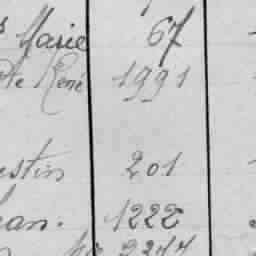 Marie 67
René 1991
estin 201
ean. 1222